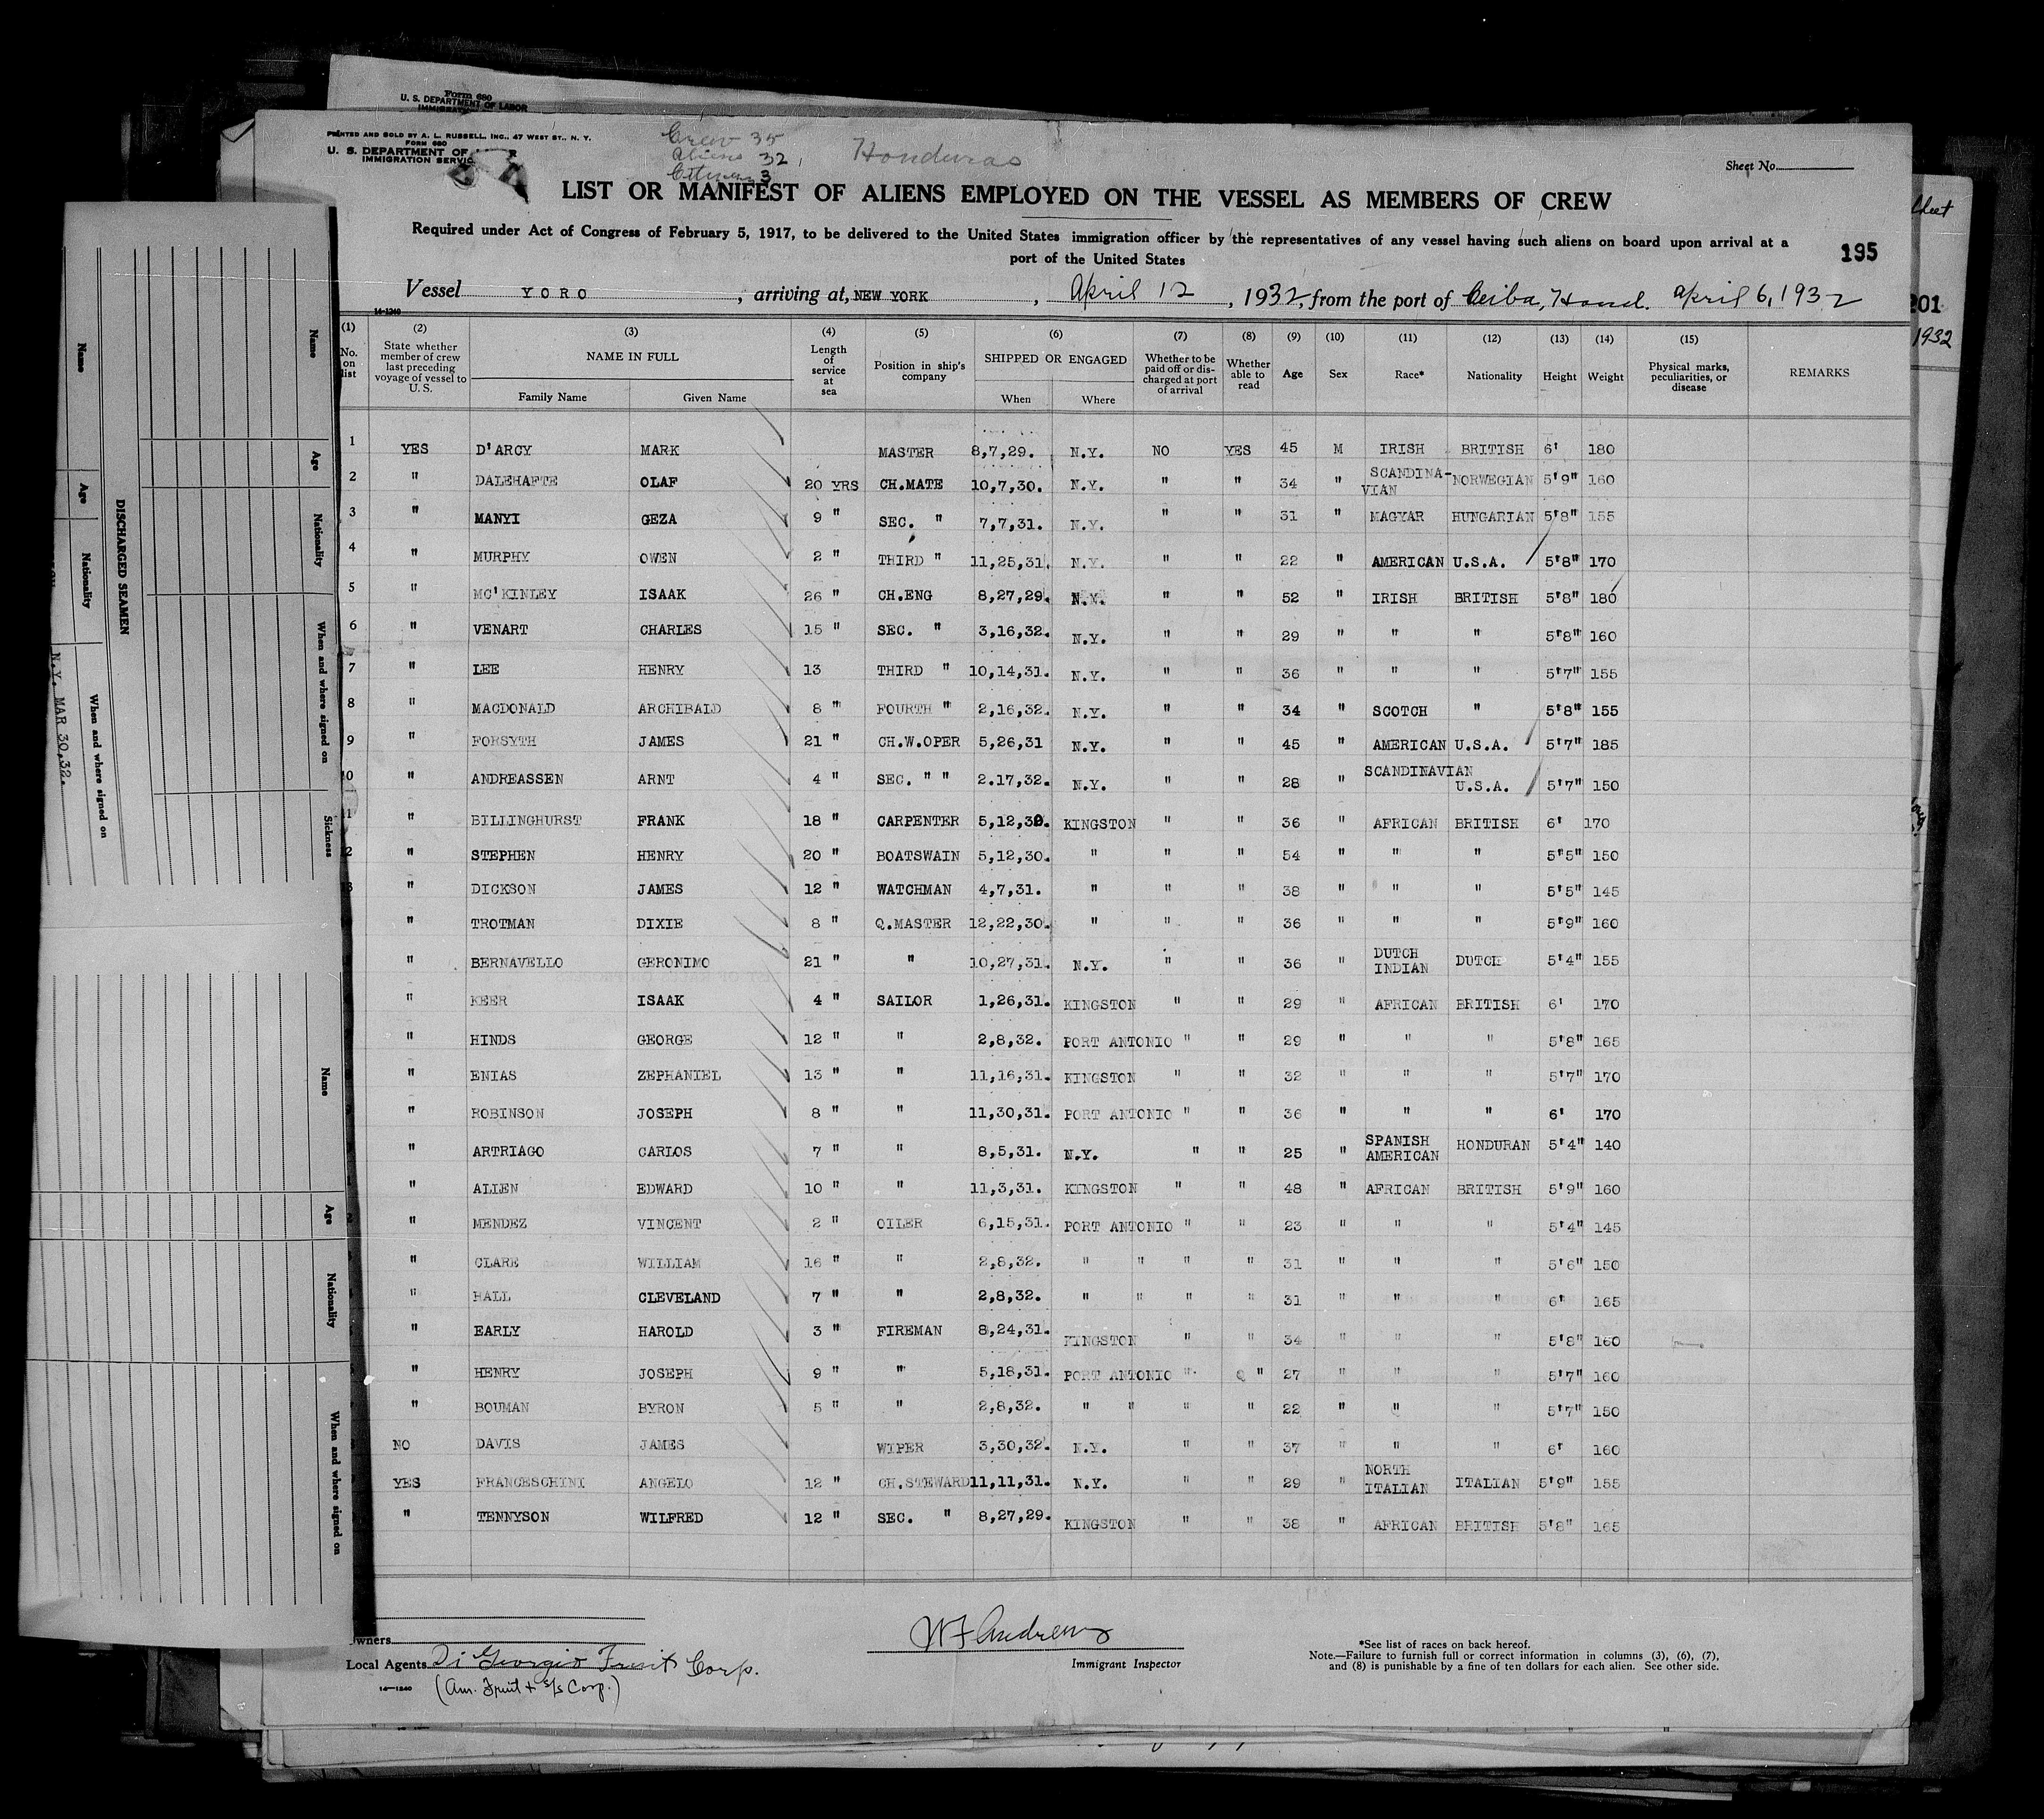 Form 680
U. S. DEPARTMENT OF LABOR
PRINTED AND SOLD BY A. L. RUSSELL, INC., 47 WEST ST., N. Y.
FORM 680
U. S. DEPARTMENT OF
IMMIGRATION SERVIC
Crew 35
Aliens 32
Citizens 3
Honduras
Sheet No.
LIST OR MANIFEST OF ALIENS EMPLOYED ON THE VESSEL AS MEMBERS OF CREW
Required under Act of Congress of February 5, 1917, to be delivered to the United States immigration officer by the representatives of any vessel having such aliens on board upon arrival at a
port of the United States
195
Vessel YORO, arriving at, NEW YORK, April 12, 1932, from the port of Ceiba, Hond. April 6, 1932
14-1240
(1) (2) (3) (4) (5) (6) (7) (8) (9) (10) (11) (12) (13) (14) (15)
No. on list State whether member of crew last preceding voyage of vessel to U. S. NAME IN FULL Length of service at sea Position in ship's company SHIPPED OR ENGAGED Whether to be paid off or discharged at port of arrival Whether able to read Age Sex Race* Nationality Height Weight Physical marks, peculiarities, or disease REMARKS
Family Name Given Name When Where
1 YES D'ARCY MARK MASTER 8,7,29. N.Y. NO YES 45 M IRISH BRITISH 6' 180
2 " DALEHAFTE OLAF 20 YRS CH.MATE 10,7,30. N.Y. " " 34 " SCANDINA-VIAN NORWEGIAN 5'9" 160
3 " MANYI GEZA 9 " SEC. " 7,7,31. N.Y. " " 31 " MAGYAR HUNGARIAN 5'8" 155
4 " MURPHY OWEN 2 " THIRD " 11,25,31. N.Y. " " 22 " AMERICAN U.S.A. 5'8" 170
5 " MC'KINLEY ISAAK 26 " CH.ENG 8,27,29. N.Y. " " 52 " IRISH BRITISH 5'8" 180
6 " VENART CHARLES 15 " SEC. " 3,16,32. N.Y. " " 29 " " " 5'8" 160
7 " LEE HENRY 13 THIRD " 10,14,31. N.Y. " " 36 " " " 5'7" 155
8 " MACDONALD ARCHIBALD 8 " FOURTH " 2,16,32. N.Y. " " 34 " SCOTCH " 5'8" 155
9 " FORSYTH JAMES 21 " CH.W.OPER 5,26,31 N.Y. " " 45 " AMERICAN U.S.A. 5'7" 185
10 " ANDREASSEN ARNT 4 " SEC. " " 2.17,32. N.Y. " " 28 " SCANDINAVIAN U.S.A. 5'7" 150
11 " BILLINGHURST FRANK 18 " CARPENTER 5,12,30. KINGSTON " " 36 " AFRICAN BRITISH 6' 170
2 " STEPHEN HENRY 20 " BOATSWAIN 5,12,30. " " " 54 " " " 5'5" 150
3 " DICKSON JAMES 12 " WATCHMAN 4,7,31. " " " 38 " " " 5'5" 145
" TROTMAN DIXIE 8 " Q.MASTER 12,22,30. " " " 36 " " " 5'9" 160
" BERNAVELLO GERONIMO 21 " " 10,27,31. N.Y. " " 36 " DUTCH INDIAN DUTCH 5'4" 155
" KEER ISAAK 4 " SAILOR 1,26,31. KINGSTON " " 29 " AFRICAN BRITISH 6' 170
" HINDS GEORGE 12 " " 2,8,32. PORT ANTONIO " " 29 " " " 5'8" 165
" ENIAS ZEPHANIEL 13 " " 11,16,31. KINGSTON " " 32 " " " 5'7" 170
" ROBINSON JOSEPH 8 " " 11,30,31. PORT ANTONIO " " 36 " " " 6' 170
" ARTRIAGO CARLOS 7 " " 8,5,31. N.Y. " " 25 " SPANISH AMERICAN HONDURAN 5'4" 140
" ALLEN EDWARD 10 " " 11,3,31. KINGSTON " " 48 " AFRICAN BRITISH 5'9" 160
" MENDEZ VINCENT 2 " OILER 6,15,31. PORT ANTONIO " " 23 " " " 5'4" 145
" CLARE WILLIAM 16 " " 2,8,32. " " " " 31 " " " 5'6" 150
" HALL CLEVELAND 7 " " 2,8,32. " " " " 31 " " " 6' 165
" EARLY HAROLD 3 " FIREMAN 8,24,31. KINGSTON " " 34 " " " 5'8" 160
" HENRY JOSEPH 9 " " 5,18,31. PORT ANTONIO " " 27 " " " 5'7" 160
" BOUMAN BYRON 5 " " 2,8,32. " " " " 22 " " " 5'7" 150
NO DAVIS JAMES WIPER 3,30,32. N.Y. " " 37 " " " 6' 160
YES FRANCESCHINI ANGELO 12 " CH.STEWARD 11,11,31. N.Y. " " 29 " NORTH ITALIAN ITALIAN 5'9" 155
" TENNYSON WILFRED 12 " SEC. " 8,27,29. KINGSTON " " 38 " AFRICAN BRITISH 5'8" 165
Owners
Local Agents Di Giorgio Fruit Corp.
(Am. Fruit & S/S Corp.)
14-1240
W F Andrews
Immigrant Inspector
*See list of races on back hereof.
Note.—Failure to furnish full or correct information in columns (3), (6), (7),
and (8) is punishable by a fine of ten dollars for each alien. See other side.
DISCHARGED SEAMEN
Name Age Nationality When and where signed on
N.Y. MAR 30,32.
Name Age Nationality When and where signed on Sickness
Name Age Nationality When and where signed on
Sheet
201
1932